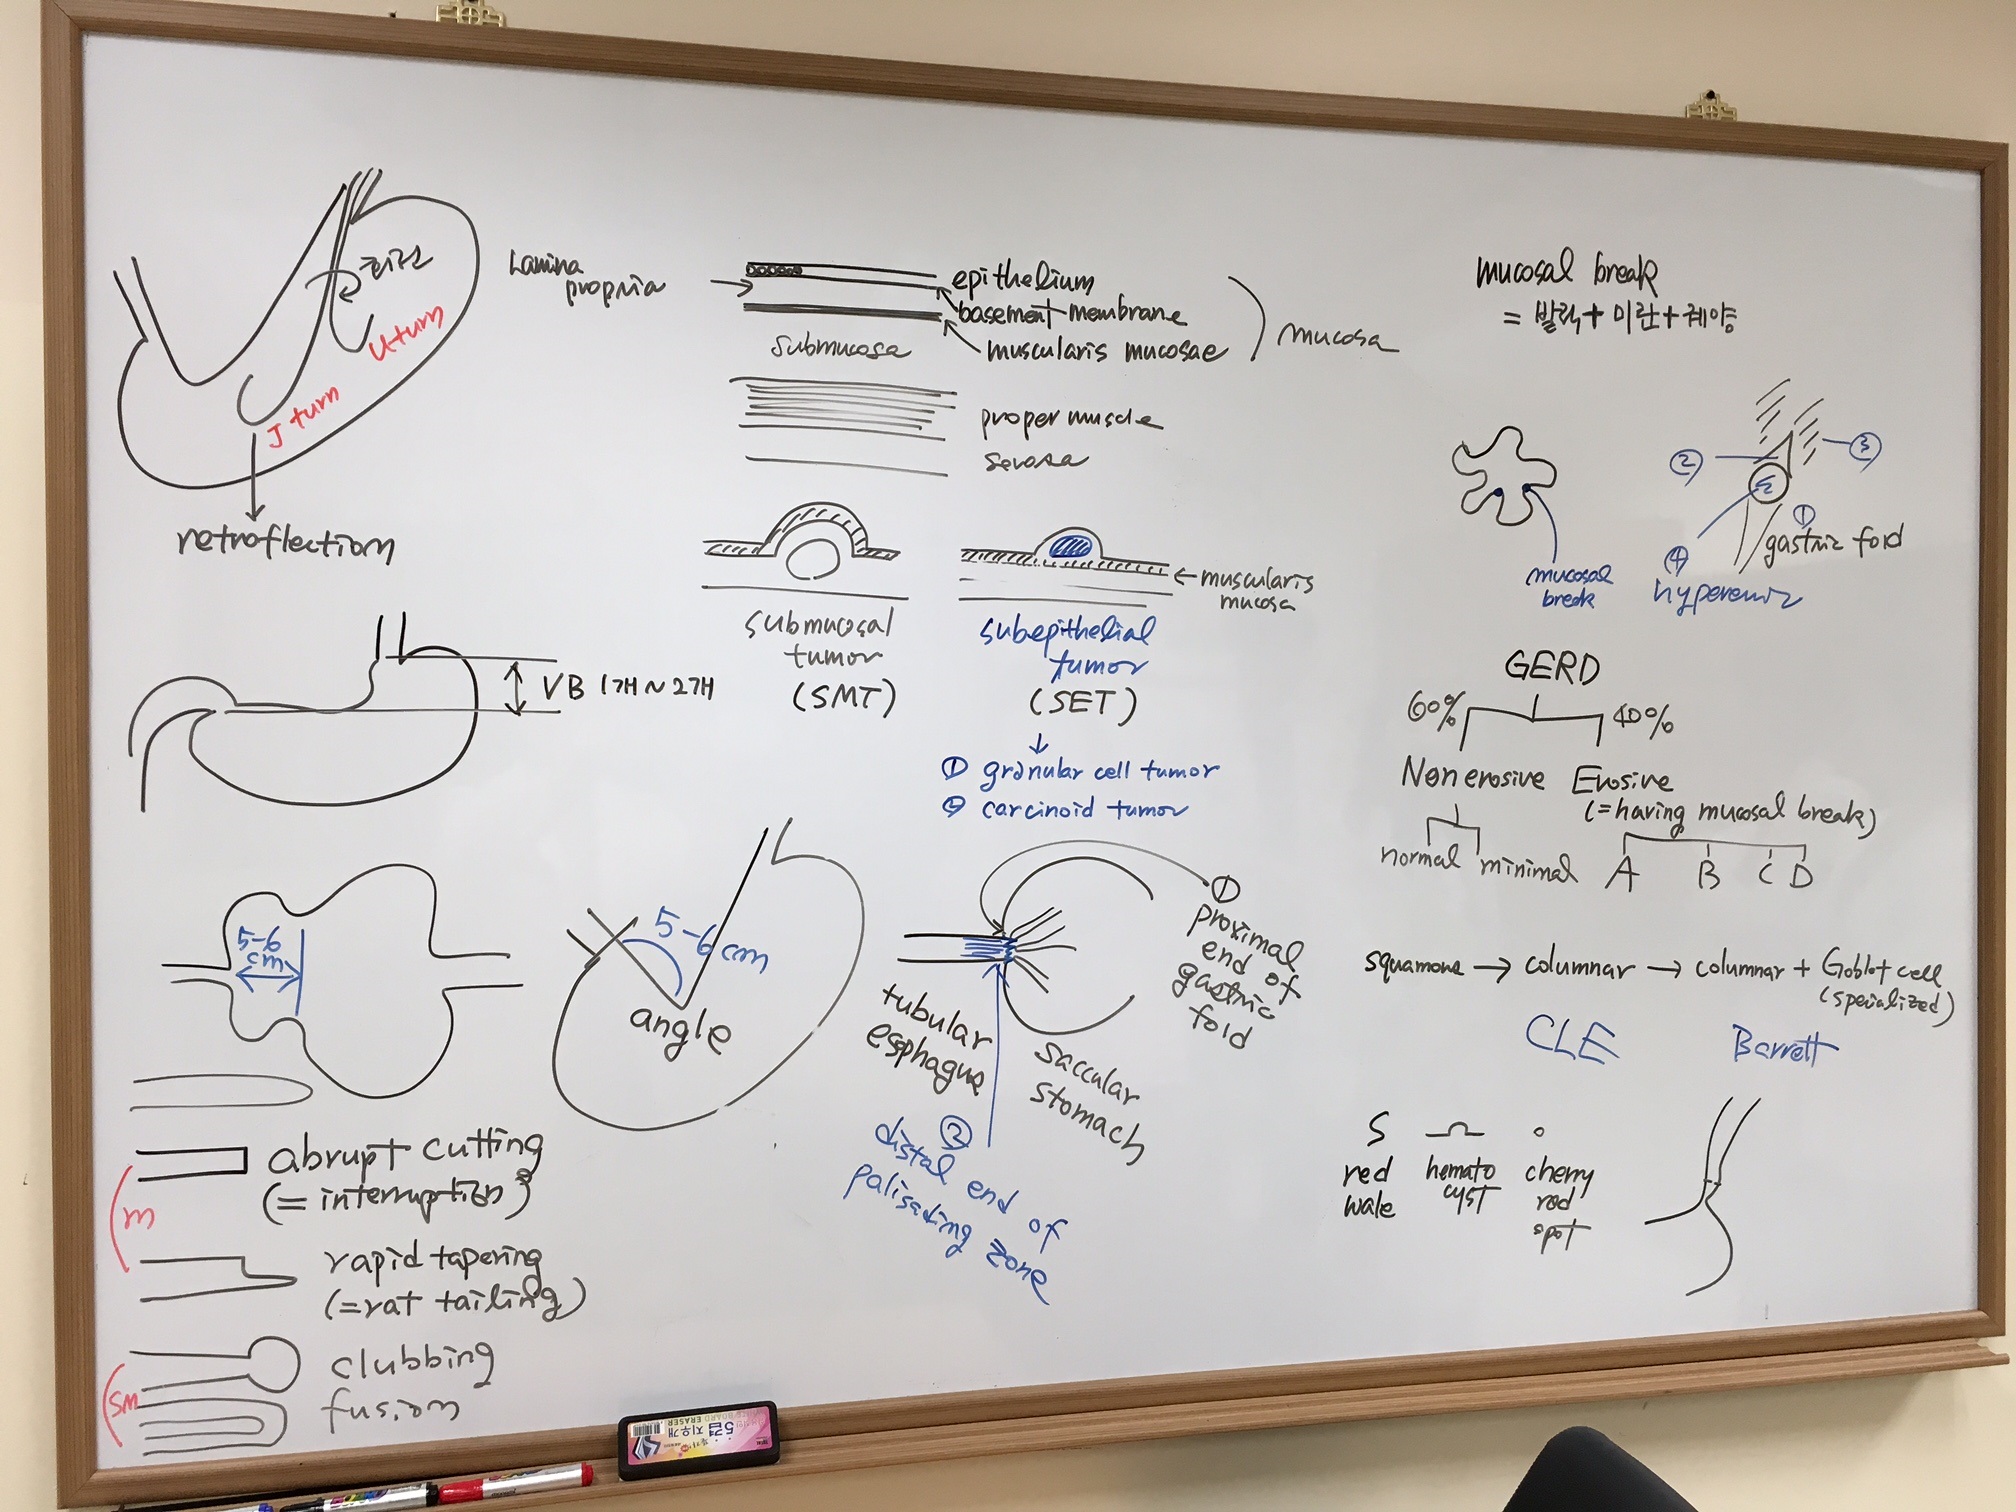 회전
U turn
J turn
retroflection
Lamina
propria
epithelium
basement membrane
muscularis mucosae
mucosa
submucosa
proper muscle
serosa
submucosal
tumor
(SMT)
← muscularis
mucosa
subepithelial
tumor
(SET)
↓
① granular cell tumor
② carcinoid tumor
VB 1개~2개
5-6
cm
5-6 cm
angle
m
abrupt cutting
(= interruption)
rapid tapering
(= rat tailing)
sm
clubbing
fusion
①
proximal
end of
gastric
fold
tubular
esphagus
saccular
stomach
②
distal end of
palisading zone
mucosal break
= 발적 + 미란 + 궤양
mucosal
break
②
③
①
gastric fold
④
hyperemia
GERD
60%
40%
Non erosive
Erosive
(=having mucosal break)
normal
minimal
A B C D
squamous → columnar → columnar + Goblot cell
(specialized)
CLE
Barrett
red
wale
hemato
cyst
cherry
red
spot
5겹 지우개
BOARD ERASER